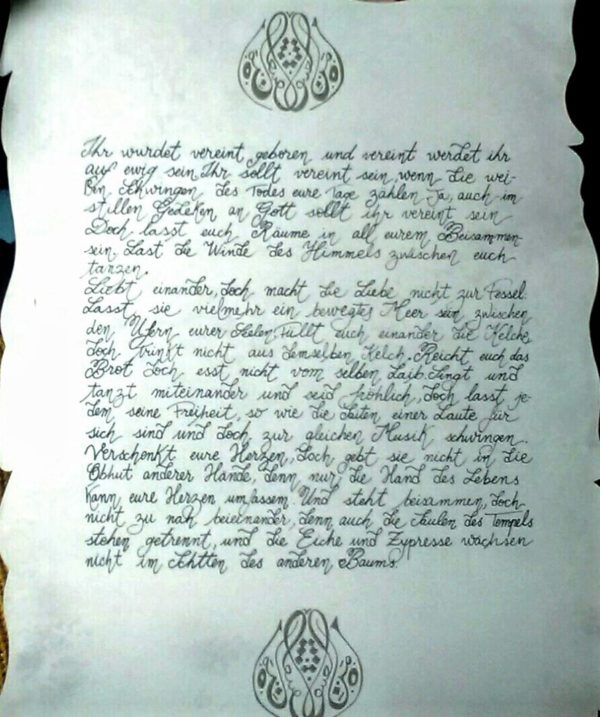 Ihr wurdet vereint geboren und vereint werdet ihr
auf ewig sein. Ihr sollt vereint sein, wenn die wei-
ßen Schwingen des Todes eure Tage zählen Ja, auch im
stillen Gedeken an Gott sollt ihr vereint sein
Doch lasst euch Räume in all eurem Beisammen-
sein. Last die Winde des Himmels zwischen euch
tanzen.
Liebt einander, doch macht die Liebe nicht zur Fessel:
Lasst sie vielmehr ein bewegtes Meer sein zwischen
den Ufern eurer Seelen. Füllt euch einander die Kelche,
doch trinkt nicht aus demselben Kelch. Reicht euch das
Brot doch esst nicht vom selben Laib. Singt und
tanzt miteinander und seid fröhlich, doch lasst je-
dem seine Freiheit, so wie die Saiten einer Laute für
sich sind und doch zur gleichen Musik schwingen.
Verschenkt eure Herzen, doch gebt sie nicht in die
Obhut anderer Hände, denn nur die Hand des Lebens
kann eure Herzen umfassem. Und steht beisammen, doch
nicht zu nah beieinander, denn auch die Säulen des Tempels
stehen getrennt, und die Eiche und Zypresse wachsen
nicht im Schtten des anderen Baums.